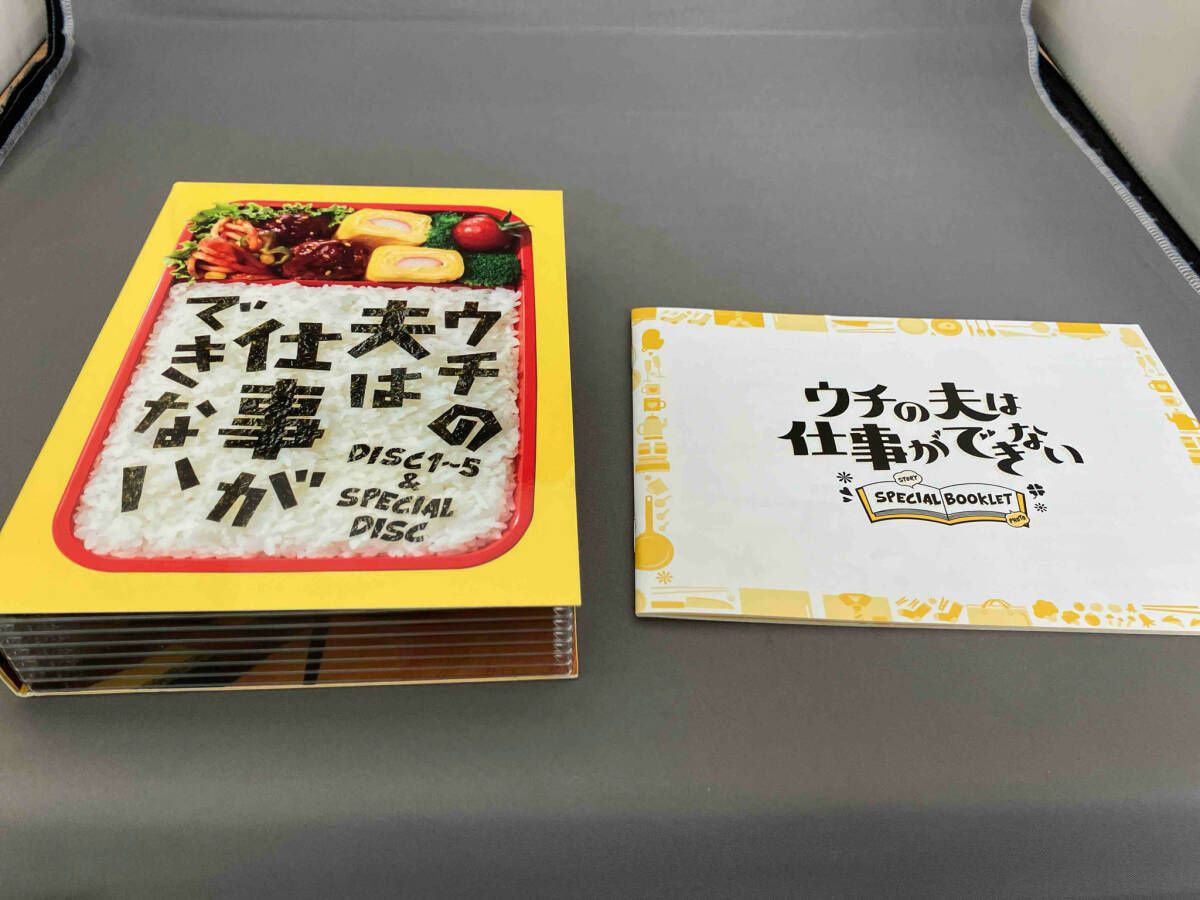 ウチの
夫は
仕事が
できない
DISC1~5
&
SPECIAL
DISC
ウチの夫は
仕事ができない
STORY
SPECIAL BOOKLET
PHOTO